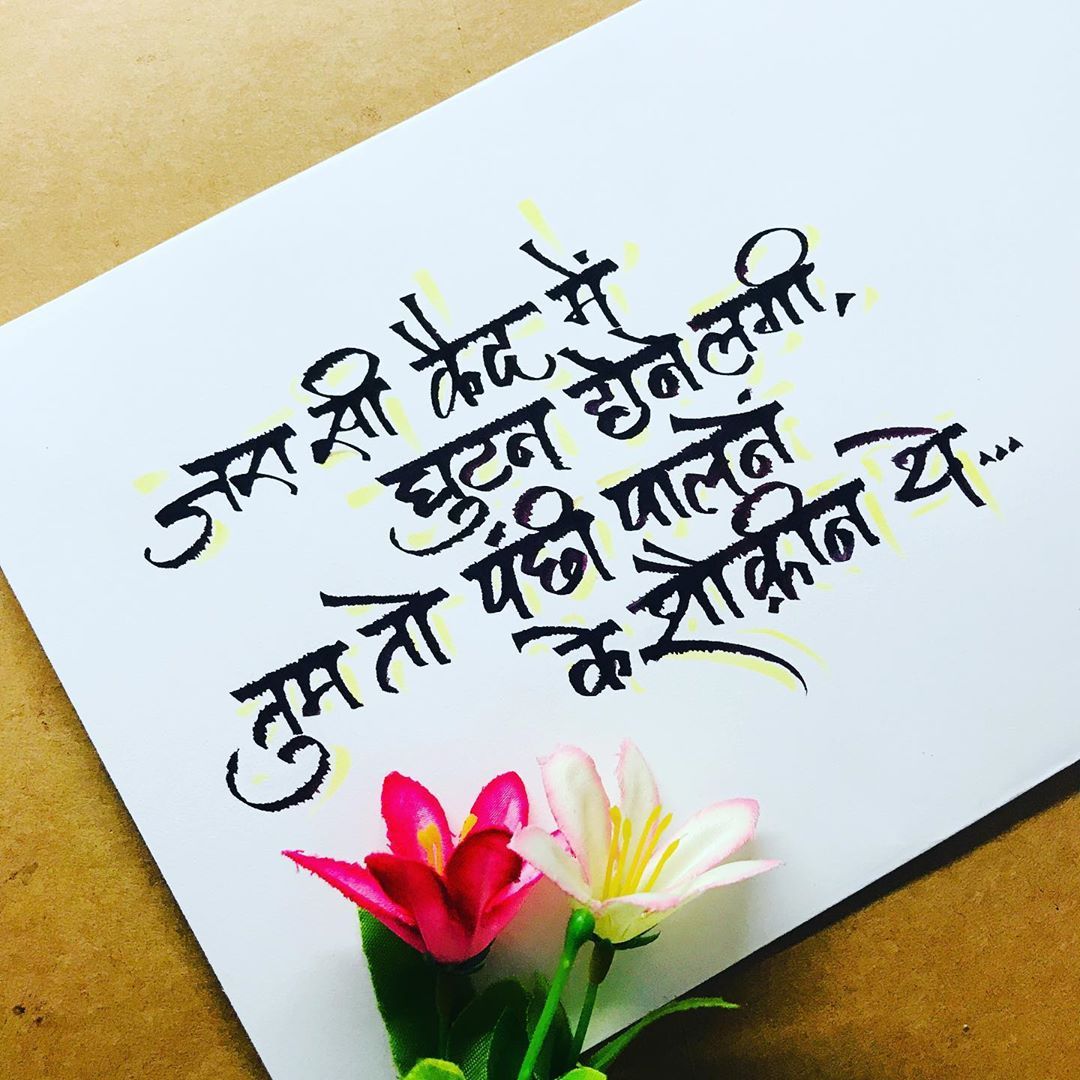 जरा सी कैद में
घुटन होने लगी,
तुम तो पंछी पालने
के शौक़ीन थे...